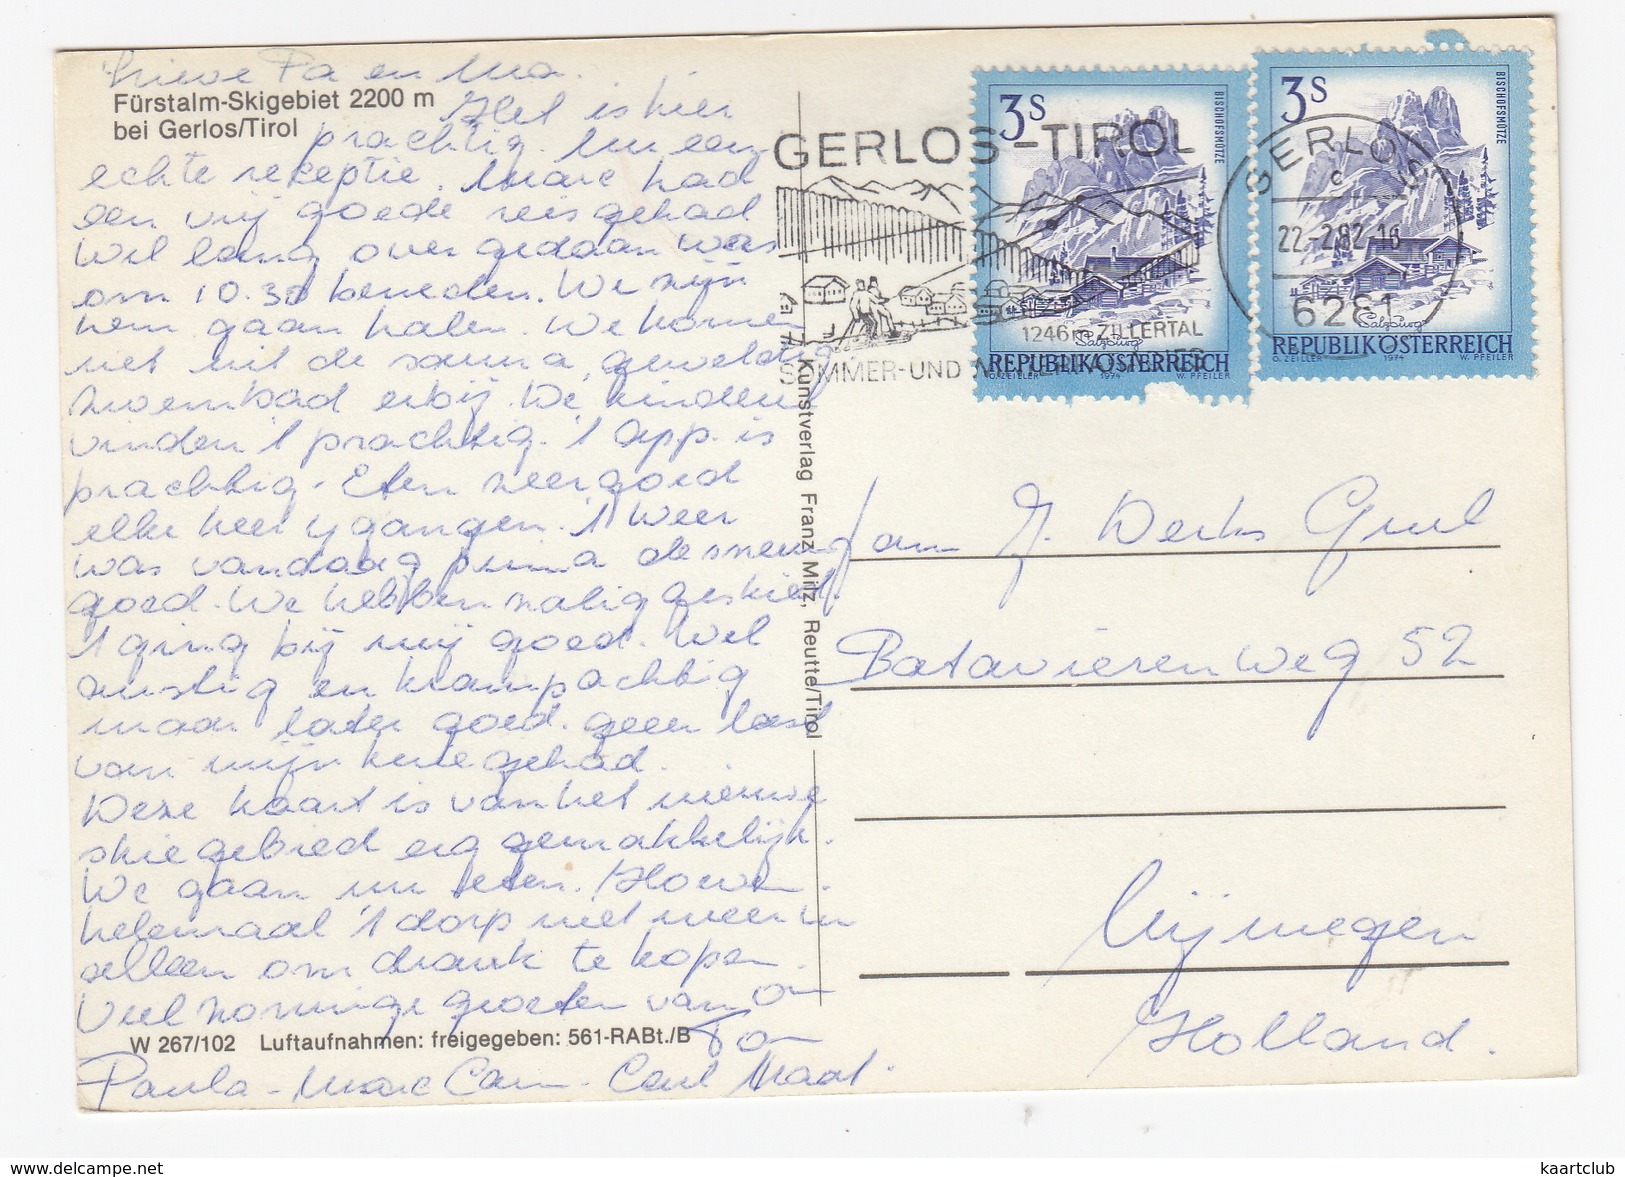 Lieve Pa en Ma.
Fürstalm-Skigebiet 2200 m
bei Gerlos/Tirol
Het is hier
prachtig. Nu een
echte receptie. Marc had
een vrij goede reis gehad
Wel lang over gedaan was
om 10.30 beneden. We zijn
hem gaan halen. We komen
net uit de sauna, geweldig
zwembad erbij. De kinderen
vinden 't prachtig. 't app. is
prachtig. Eten zeer goed
elke keer 4 gangen. 't Weer
was vandaag prima de sneeuw
goed. We hebben zalig geskied.
't ging bij mij goed. Wel
angstig en krampachtig
maar later goed. geen last
van mijn knie gehad.
Deze kaart is van het nieuwe
skiegebied erg gemakkelijk.
We gaan nu eten. Hoeven
helemaal 't dorp niet meer in
alleen om drank te kopen.
Veel zonnige groeten van on
Ton
W 267/102 Luftaufnahmen: freigegeben: 561-RABt./B
Paula - Marc Cam - Carl Maal.
Kunstverlag Franz Milz, Reutte/Tirol
GERLOS-TIROL
1246m ZILLERTAL
SOMMER-UND
3S
BISCHOFSMÜTZE
Salzburg
REPUBLIK ÖSTERREICH
O. ZEILLER 1974 W. PFEILER
3S
BISCHOFSMÜTZE
Salzburg
REPUBLIK ÖSTERREICH
O. ZEILLER 1974 W. PFEILER
GERLOS
c
22.-2.82-16
6281
Fam J. Derks Grul
Batavierenweg 52
Nijmegen
Holland.
www.delcampe.net
kaartclub